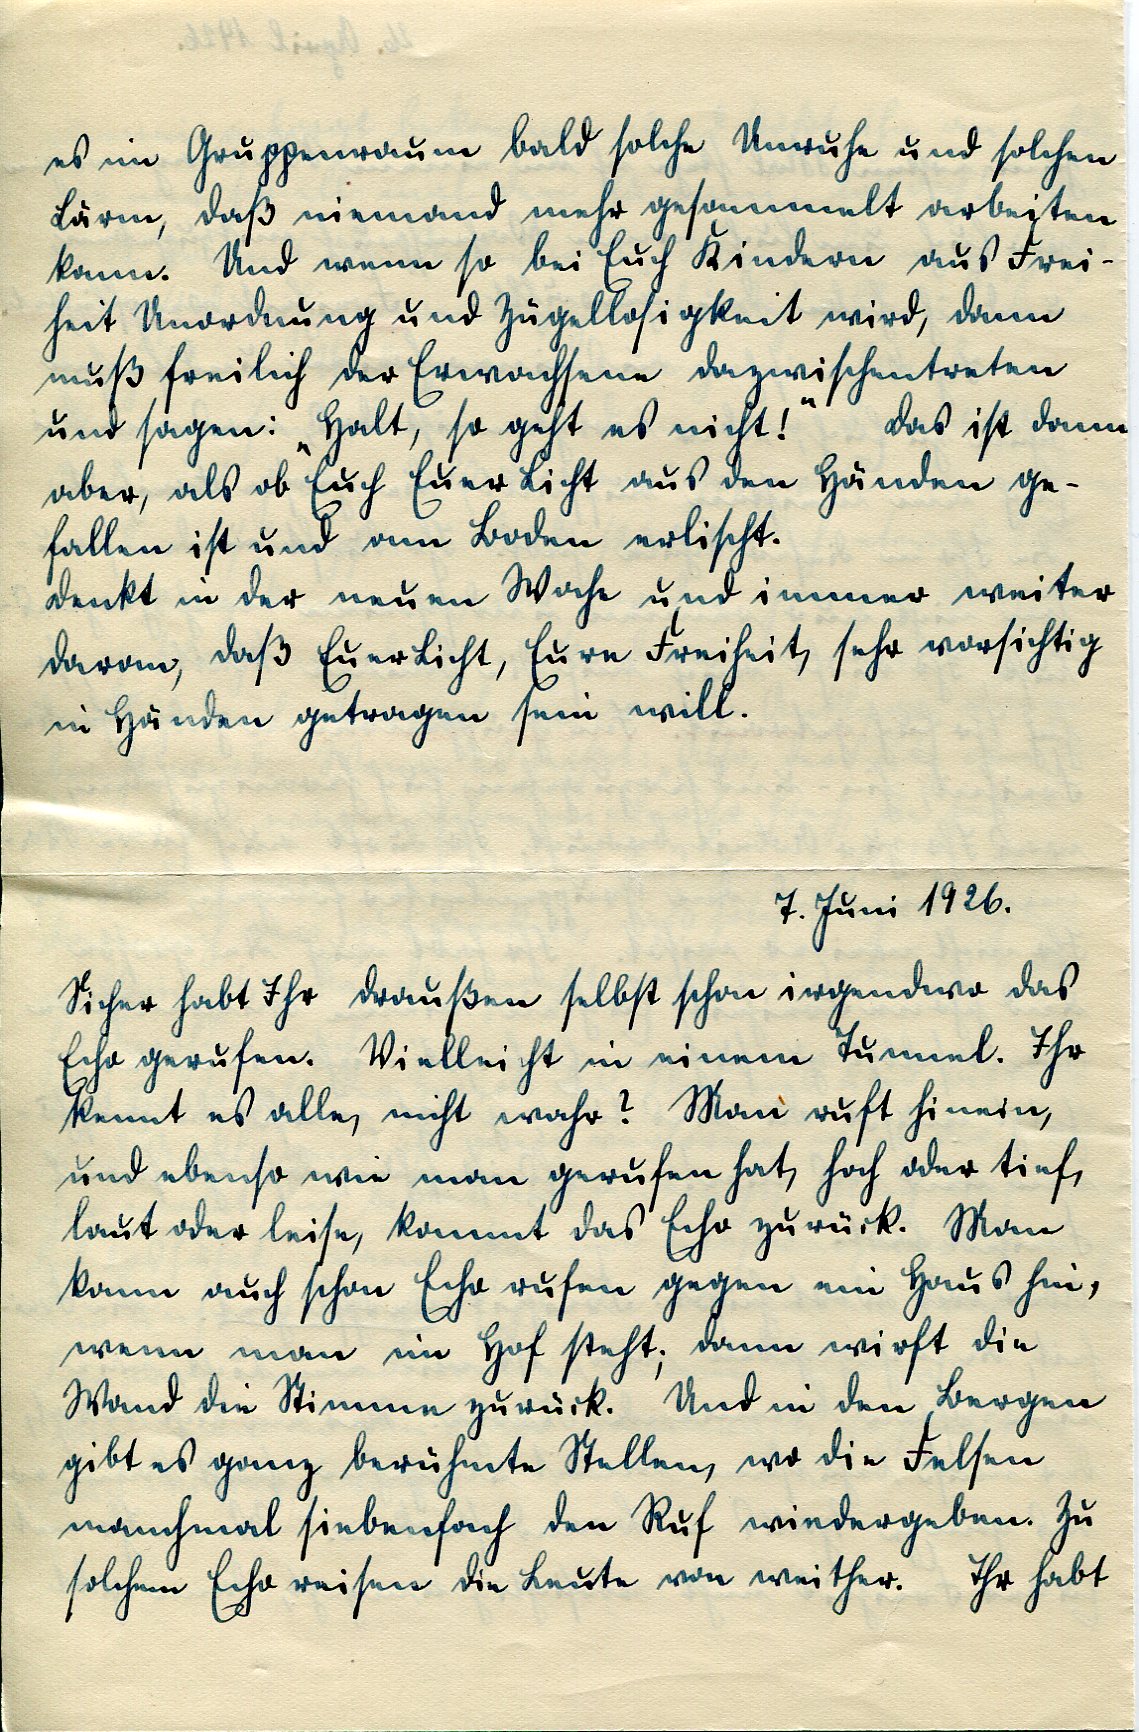 es im Gruppenraum bald solche Unruhe und solchen
Lärm, daß niemand mehr gesammelt arbeiten
kann. Und wenn so bei Euch Kindern aus Frei-
heit Unordnung und Zügellosigkeit wird, dann
muß freilich der Erwachsene dazwischentreten
und sagen: „Halt, so geht es nicht!" Das ist dann
aber, als ob Euch Euer Licht aus den Händen ge-
fallen ist und am Boden erlischt.
Denkt in der neuen Woche und immer weiter
daran, daß Euer Licht, Eure Freiheit, sehr vorsichtig
in Händen getragen sein will.
7. Juni 1926.
Sicher habt Ihr draußen selbst schon irgendwo das
Echo gerufen. Vielleicht in einem Tunnel. Ihr
kennt es alle, nicht wahr? Man ruft hinein,
und ebenso wie man gerufen hat, hoch oder tief,
laut oder leise, kommt das Echo zurück. Man
kann auch schon Echo rufen gegen ein Haus hin,
wenn man im Hof steht; dann wirft die
Wand die Stimme zurück. Und in den Bergen
gibt es ganz berühmte Stellen, wo die Felsen
manchmal siebenfach den Ruf wiedergeben. Zu
solchem Echo reisen die Leute von weither. Ihr habt